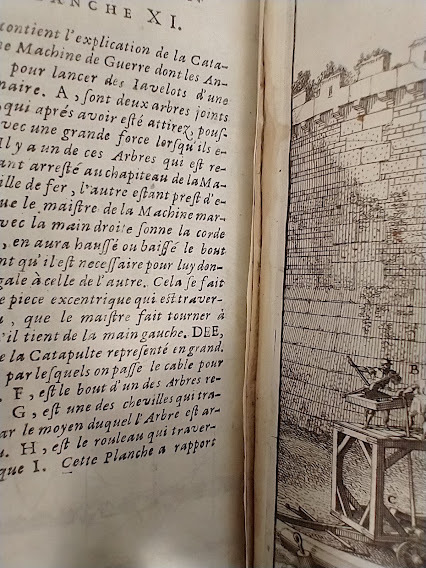 ANCHE XI.
contient l'explication de la Cata-
Machine de Guerre dont les An-
pour lancer des Iavelots d'une
naire. A, sont deux arbres joints
qui aprés avoir esté attirez, pous-
vec une grande force lorsqu'ils e-
Il y a un de ces Arbres qui est re-
ant arresté au chapiteau de la Ma-
ille de fer, l'autre estant prest d'e-
que le maistre de la Machine mar-
vec la main droite sonne la corde
, en aura haussé ou baissé le bout
nt qu'il est necessaire pour luy don-
gale à celle de l'autre. Cela se fait
e piece excentrique qui est traver-
, que le maistre fait tourner à
u'il tient de la main gauche. DEE,
e la Catapulte representé en grand.
par lesquels on passe le cable pour
F, est le bout d'un des Arbres re-
G, est une des chevilles qui tra-
ar le moyen duquel l'Arbre est ar-
u. H, est le rouleau qui traver-
que I. Cette Planche a rapport
B
C